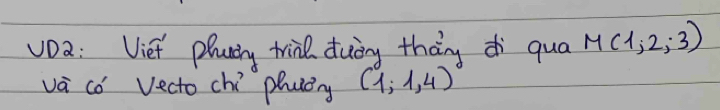 VD2: Viết phương trình đường thẳng đi qua M(1;2;3)
và có vecto chỉ phương (1;1,4)